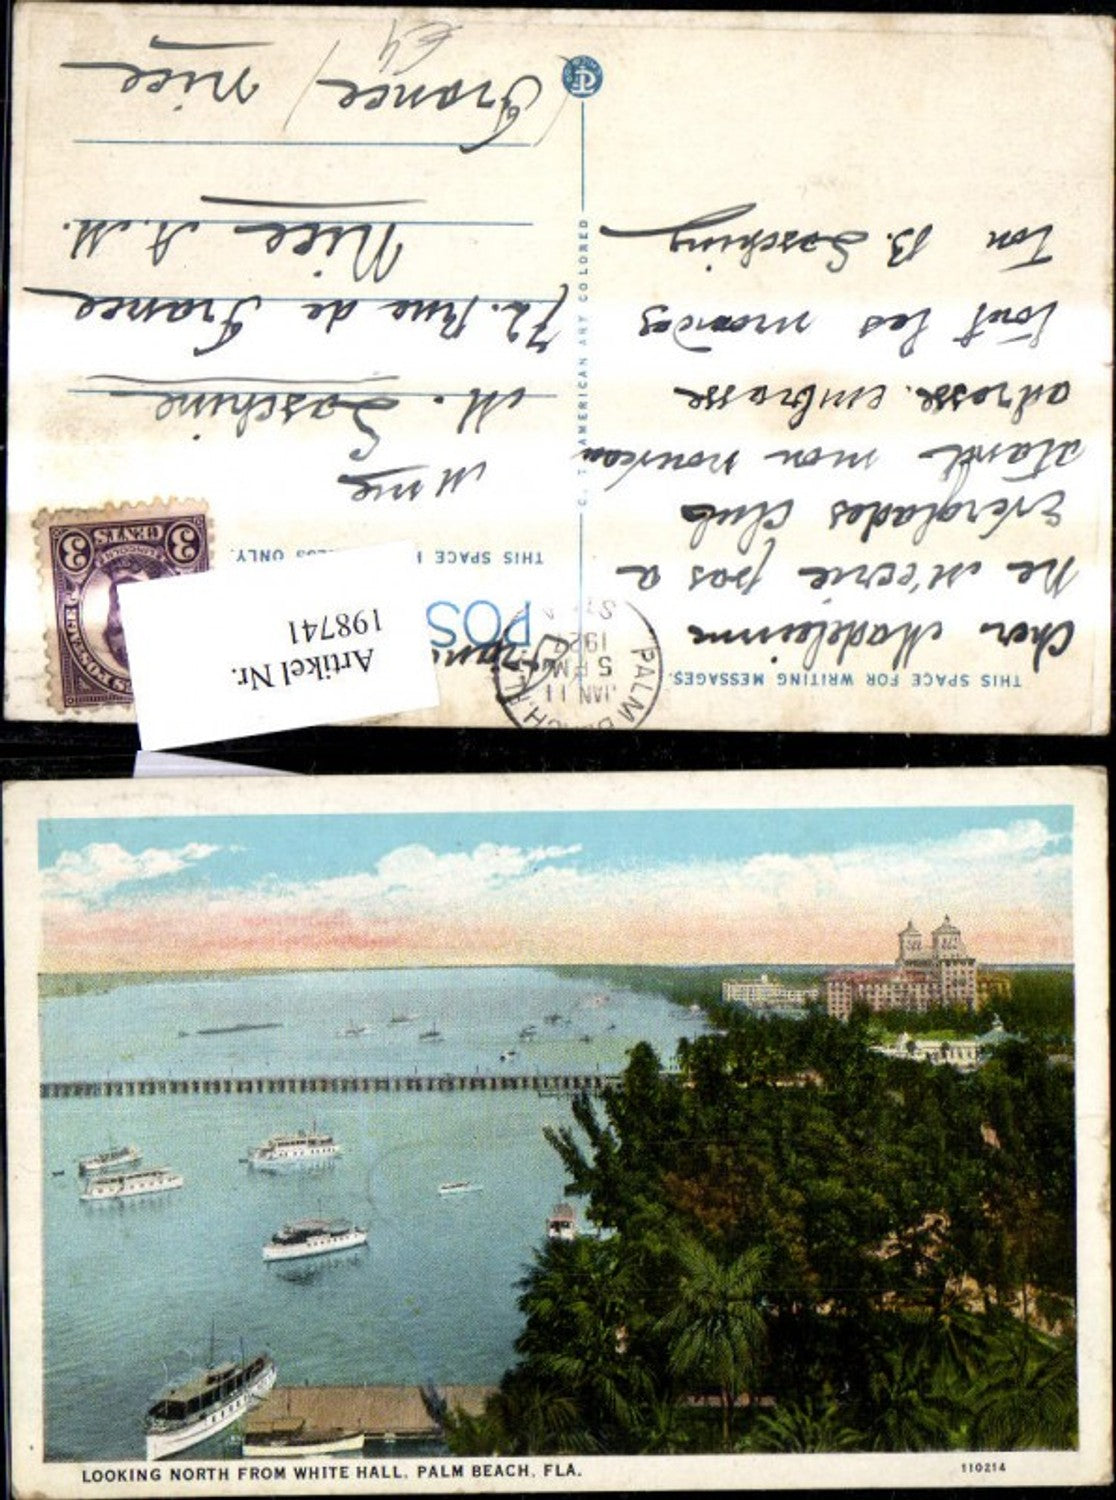 THIS SPACE FOR WRITING MESSAGES.
Cher Madeleinne
ne M'ecrie pas a
Everglades Club
étand mon nouveau
adresse. embrasse
tout les mondes
Ton B. Saschiny
C. T. AMERICAN ART COLORED
PALM BEACH, FL
JAN 11
5 PM
POS
Artikel Nr.
198741
3 CENTS 3
LINCOLN
THIS SPACE
ONLY.
Mme
M. Saschine
72. Rue de France
Nice A.M.
France / Nice
€4
LOOKING NORTH FROM WHITE HALL, PALM BEACH, FLA.
110214